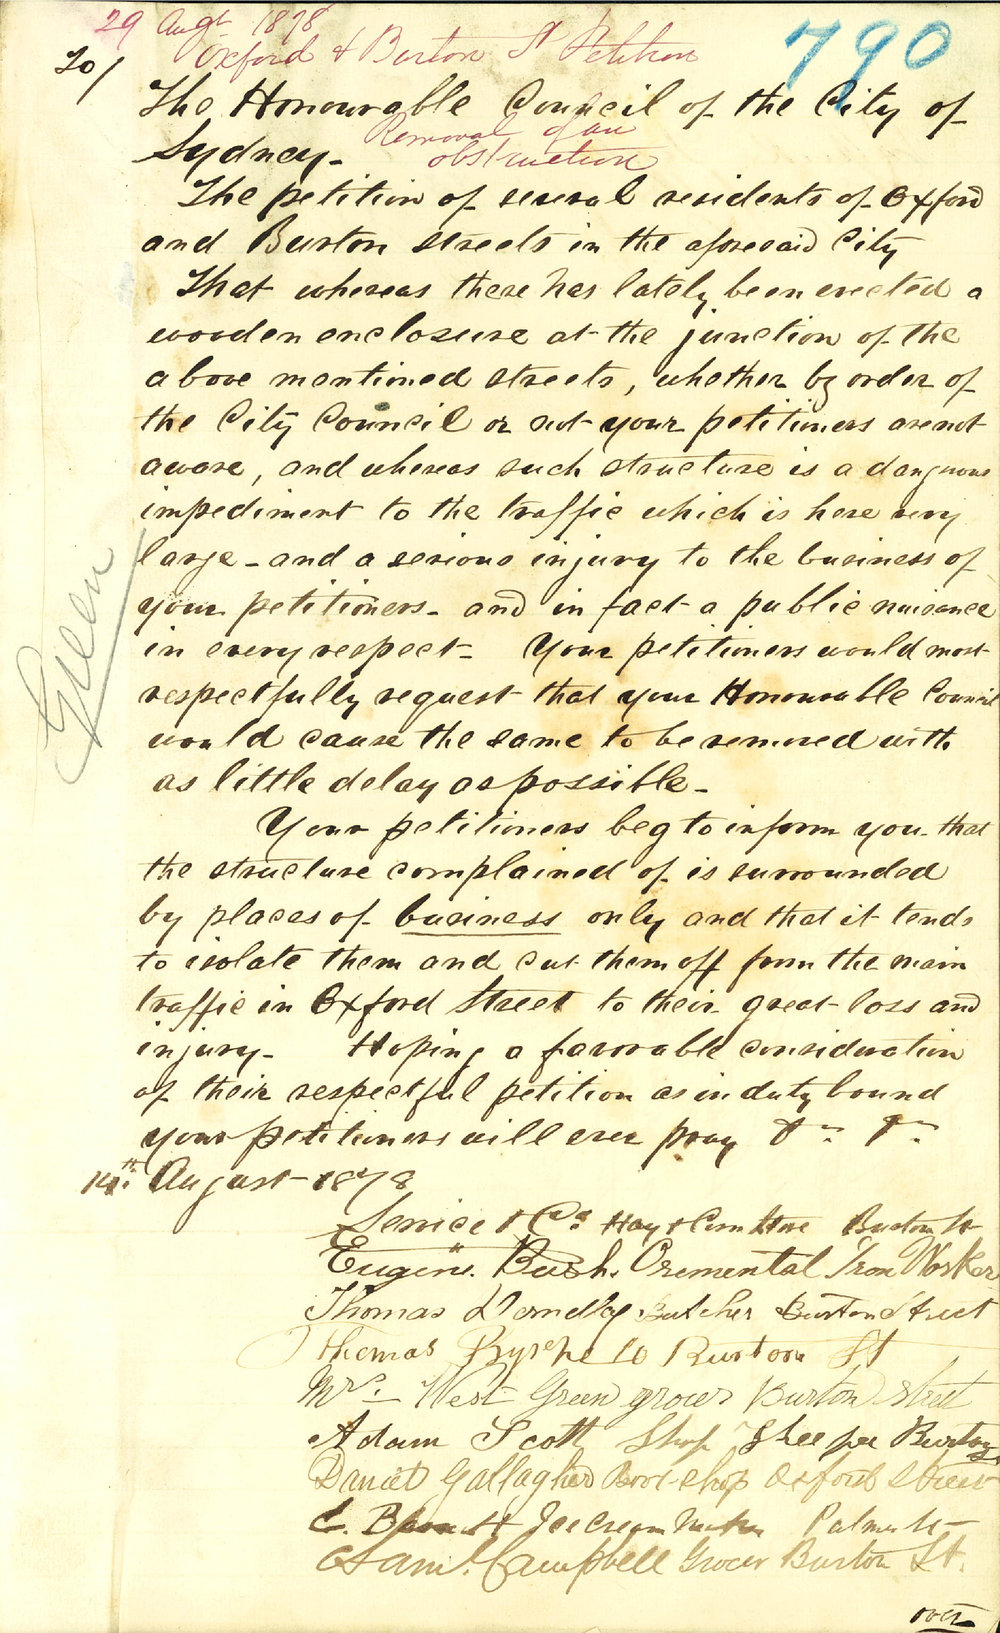 29 Augt 1878
Oxford & Burton St Petition
790
To/
The Honourable Council of the City of
Sydney -
Removal of an
obstruction
The petition of several residents of Oxford
and Burton Streets in the aforesaid City
That whereas there has lately been erected a
wooden enclosure at the junction of the
above mentioned streets, whether by order of
the City Council or not your petitioners are not
aware, and whereas such structure is a dangerous
impediment to the traffic which is here very
large - and a serious injury to the business of
your petitioners - and in fact a public nuisance
in every respect - Your petitioners would most
respectfully request that your Honourable Council
would cause the same to be removed with
as little delay as possible -
Green
Your petitioners beg to inform you that
the structure complained of is surrounded
by places of business only and that it tends
to isolate them and cut them off from the main
traffic in Oxford Street to their great loss and
injury - Hoping a favorable consideration
of their respectful petition as in duty bound
your petitioners will ever pray &c &c
August 1878
& Co Hay & Corn Store Burton St
Eugene Bush. Oremental Iron Worker
Thomas Butcher Burton Street
Thomas Byrne 10 Burton St
Mrs - West Green grocer Burton Street
Adam Scott Shop Burton
Daniel Gallagher Boot shop Oxford Street
Ice Cream Palmer St
Saml. Campbell Grocer Burton St.
over